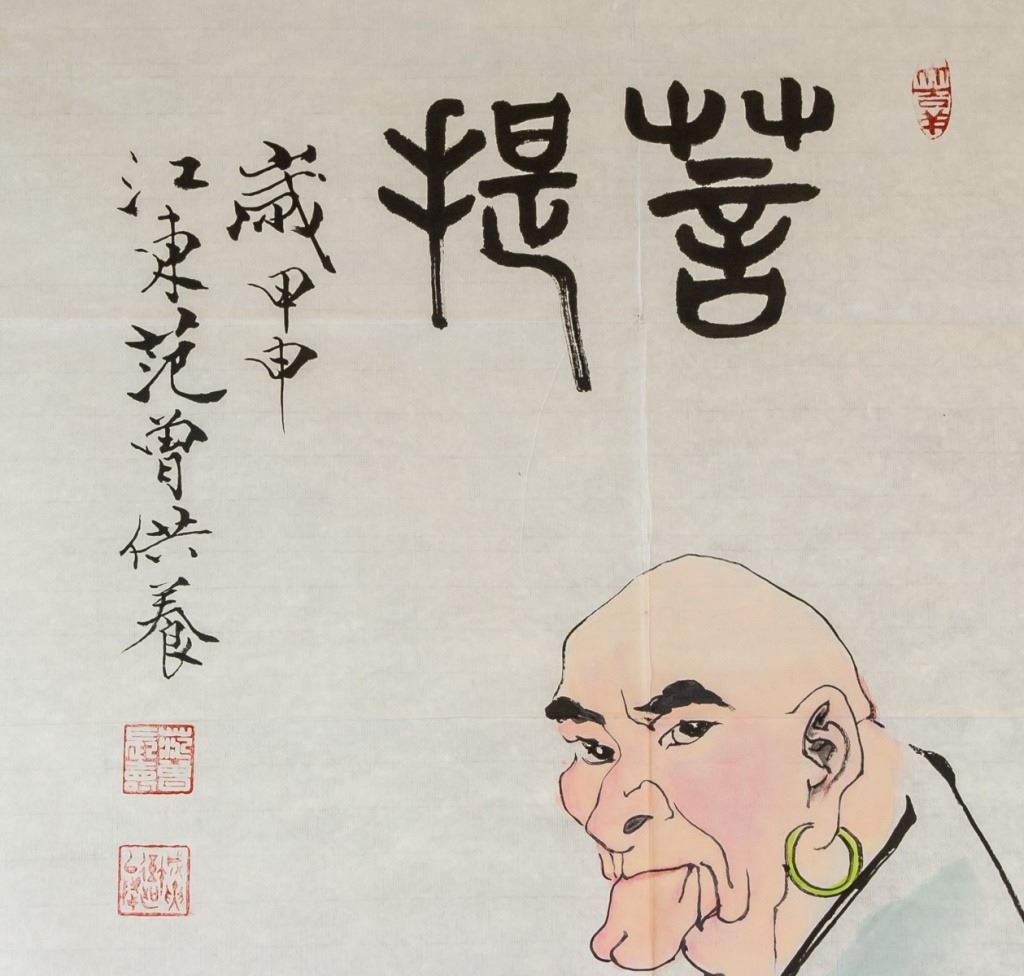 菩提
歲甲申
江東范曾供養